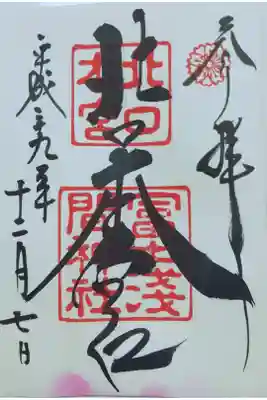 奉拝
北口本宮
北口
本宮
冨士浅
間神社
平成二九年
十二月七日